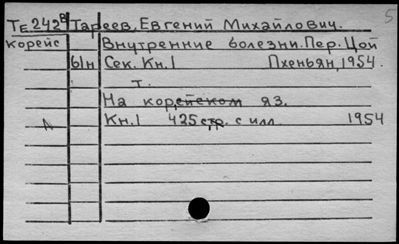 Те.242В Тареев, Евгений Михайлович.
корейс Внутренние болезни. Пер. Цой
ын Сек. Кн.1 Пхеньян, 1954.
т.
На корейском яз.
Кн.1 425 стр. с илл. 1954
5